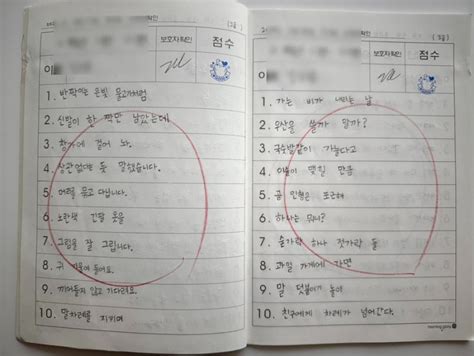 보호자확인
점수
1. 반짝이는 은빛 물고기처럼
2. 신발이 한 짝만 남았는데
3. 창가에 걸어 놔.
4. 상관없다는 듯 말했습니다.
5. 머리를 묶고 다닙니다.
6. 노란색 긴팔 옷을
7. 그림을 잘 그립니다.
8. 귀 기울여 들어요.
9. 끼어들지 않고 기다려요.
10. 말차례를 지키며
(2급)
보호자확인
점수
1. 가는 비가 내리는 날
2. 우산을 쓸까 말까?
3. 국숫발같이 가늘다고
4. 이슬이 맺힐 만큼
5. 곰 인형은 포근해
6. 하나는 뭐니?
7. 숟가락 하나 젓가락 둘
8. 과일 가게에 가면
9. 말 덧붙이기 놀이
10. 친구에게 차례가 넘어간다.
morning glory